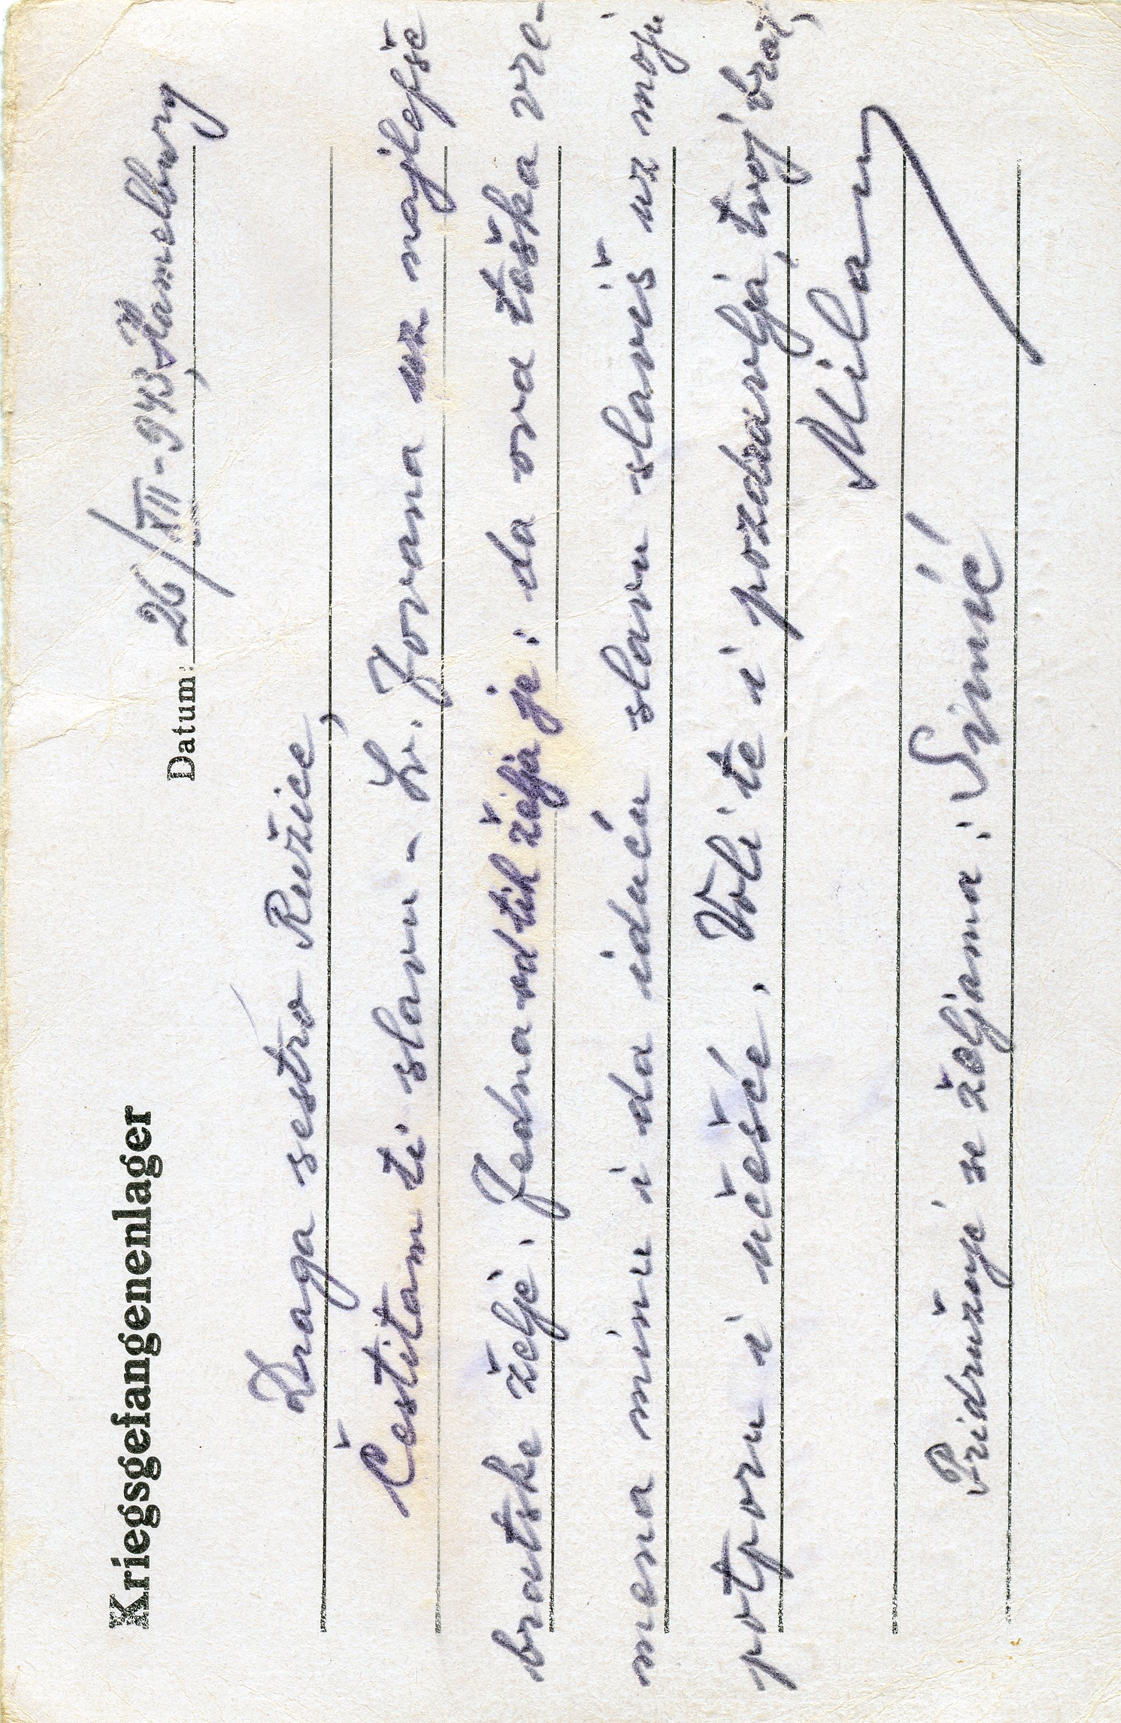 Kriegsgefangenenlager
Datum: 26/XII-943, Hamelburg
Draga sestro Ružice,
Čestitam ti slavu - Sv. Jovana uz najlepše
bratske želje. Jedna od tih želja je: da ova teška vre-
mena minu i da iduću slavu slaviš uz moju
potporu i učešće. Voli te i pozdravlja, tvoj brat,
Milan
Pridružuje se željama: Simić